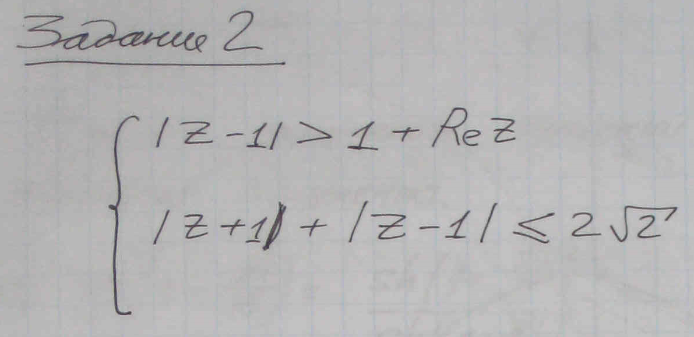 Задание 2
|z-1| > 1 + Re z
|z+1| + |z-1| ≤ 2√2